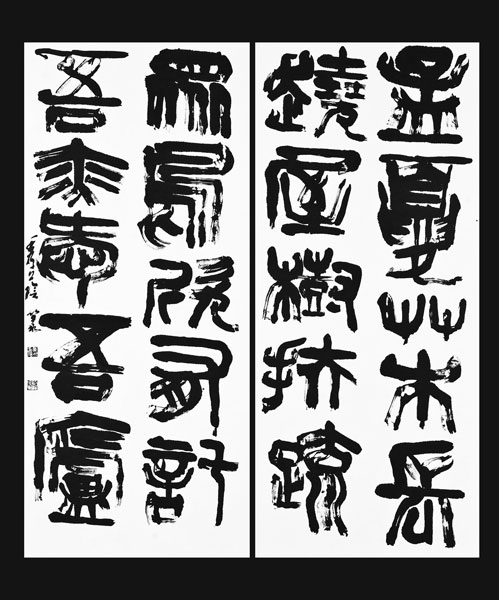 孟夏艸木長
遶屋樹扶疏
眾鳥欣有託
吾亦愛吾廬